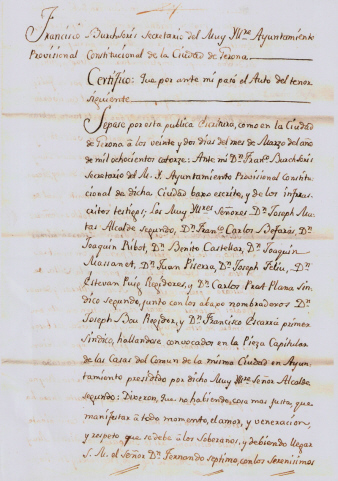 Francisco Bachs Secretario del Muy Iltre Ayuntamiento
Provisional Constitucional de la Ciudad de Gerona
Certifico: Que por ante mi pasó el Auto del tenor
siguiente
Sepase por esta publica escritura, como en la Ciudad
de Gerona à los veinte y dos dias del mes de Marzo del año
de mil ochocientos catorze: Ante mi Dn Franco Bachs
Secretario del M. I. Ayuntamiento Provisional Constitu-
cional de dicha Ciudad baxo escrito, y de los infras-
critos testigos; Los Muy Iltres Señores Dn Joseph Ma-
tas Alcalde segundo, Dn Franco Carlos Bofarás, Dn
Joaquin Ribot, Dn Benito Castellar, Dn Joaquin
Massanet, Dn Juan Piferra, Dn Joseph Feliu, Dn
Estevan Puig Regidores, y Dn Carlos Prat Plana Sin-
dico segundo, junto con los abaxo nombradores Dn
Joseph Bou Regidor, y Dn Francisco Escarrá primer
Sindico, hallandose convocados en la Pieza Capitular
de las Casas del Comun de la misma Ciudad en Ayun-
tamiento presidido por dicho Muy Iltre Señor Alcalde
segundo: Dixeron, que no habiendo, cosa mas justa, que
manifestar à todo momento, el amor, y veneracion,
y respeto, que se debe à los Soberanos, y debiendo llegar
S. M. el Señor Dn Fernando Septimo, con los Serenisimos